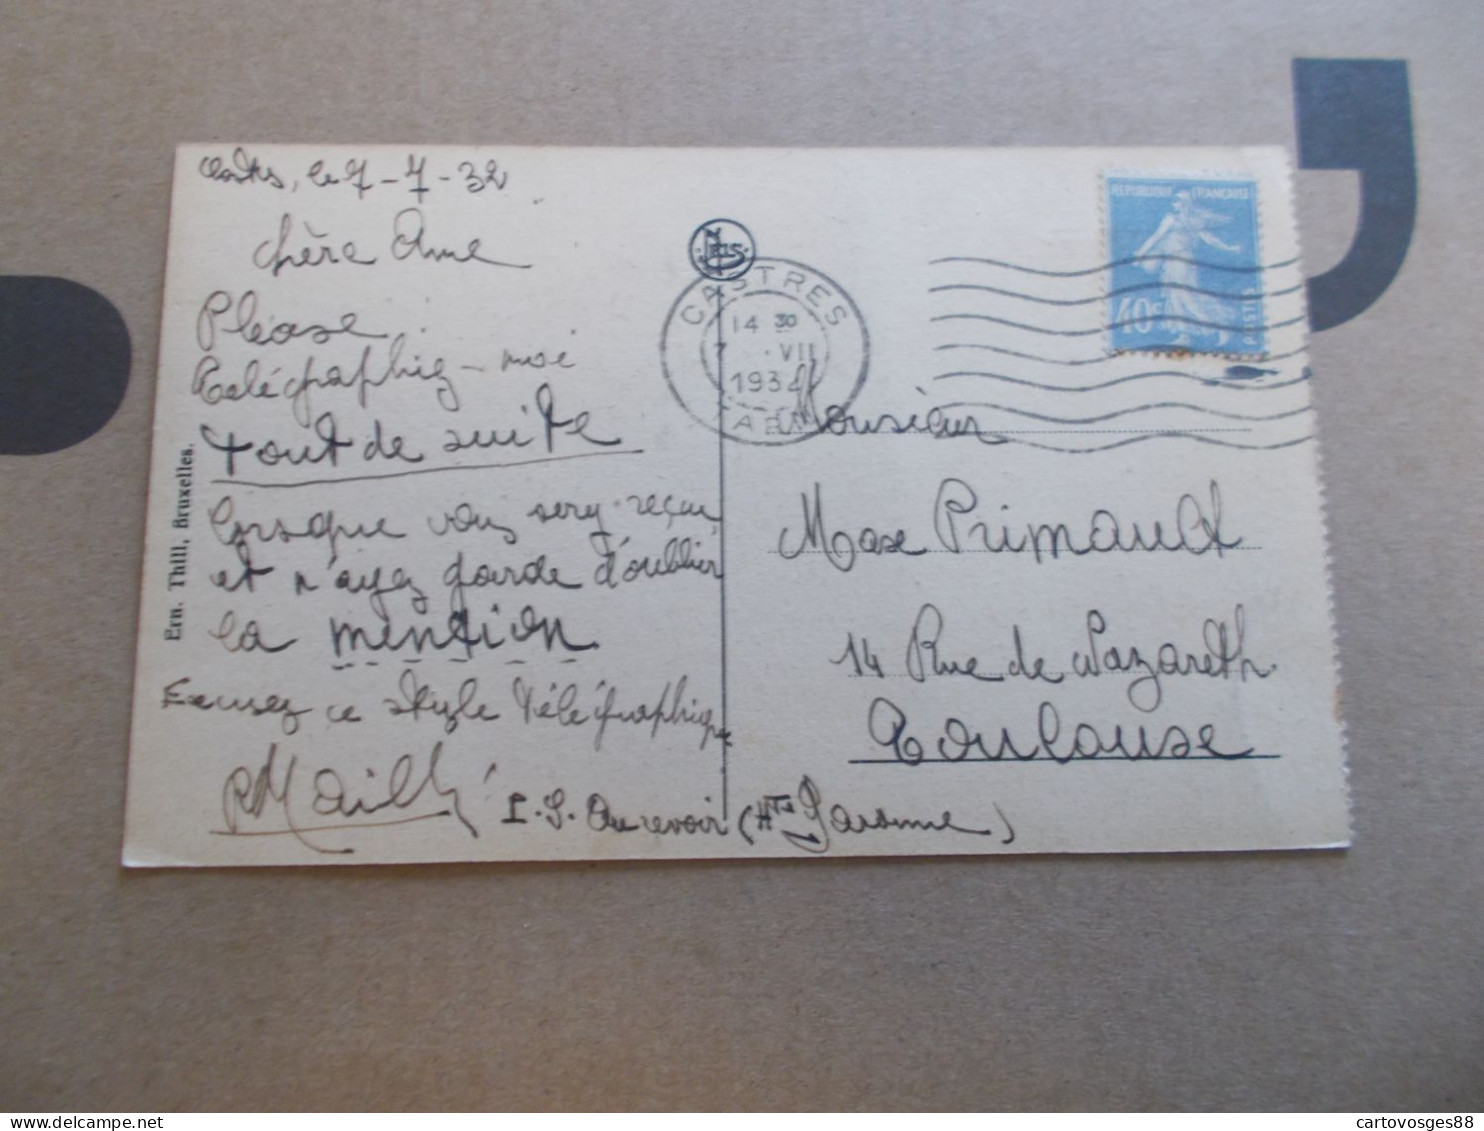 le 7-7-32
Chère Ame
Please
Télégraphiez-moi
tout de suite
lorsque vous serez reçu
et n'ayez garde d'oublier
la mention
Excusez ce style télégraphique
RMailhé
Ern. Thill, Bruxelles.
NELS
CASTRES
14 30
7 VII
1932
TARN
REPUBLIQUE FRANÇAISE
40c
POSTES
Monsieur
Max Primault
14 Rue de Nazareth
Toulouse
P.S. Au revoir (Hte Garonne)
cartovosges88